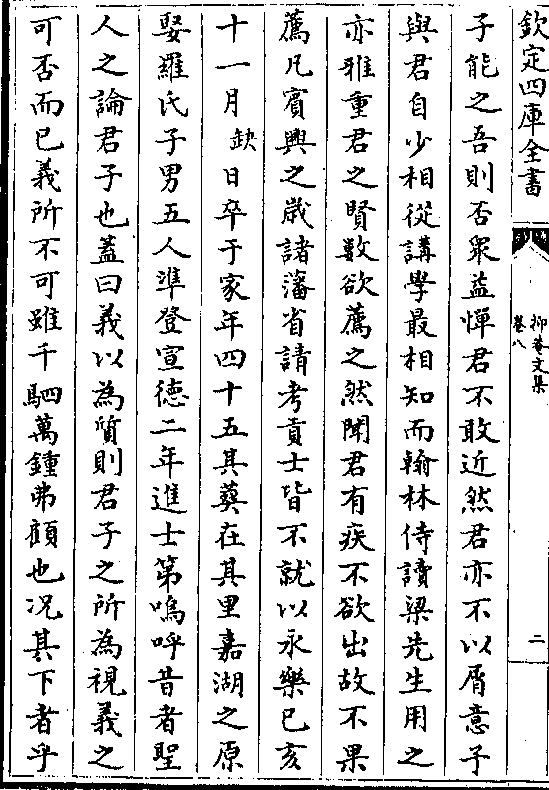 欽定四庫全書
抑菴文集
卷八
二
子能之吾則否衆益憚君不敢近然君亦不以屑意子
與君自少相從講學最相知而翰林侍讀梁先生用之
亦雅重君之賢數欲薦之然聞君有疾不欲出故不果
薦凡賓興之歲諸藩省請考貢士皆不就以永樂己亥
十一月缺日卒于家年四十五其葬在其里嘉湖之原
娶羅氏子男五人準登宣德二年進士第嗚呼昔者聖
人之論君子也蓋曰義以為質則君子之所為視義之
可否而已義所不可雖千駟萬鍾弗顧也况其下者乎